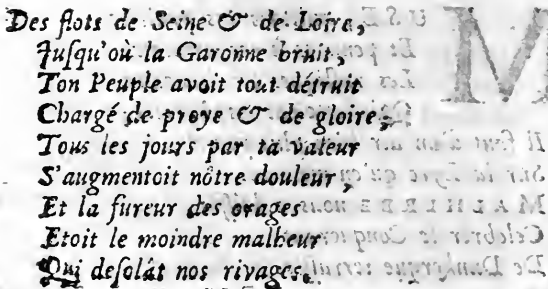 Des flots de Seine & de Loire,
Jusqu'où la Garonne bruit,
Ton Peuple avoit tout détruit
Chargé de proye & de gloire,
Tous les jours par ta valeur
S'augmentoit nôtre douleur,
Et la fureur des orages
Etoit le moindre malheur
Qui desolât nos rivages.